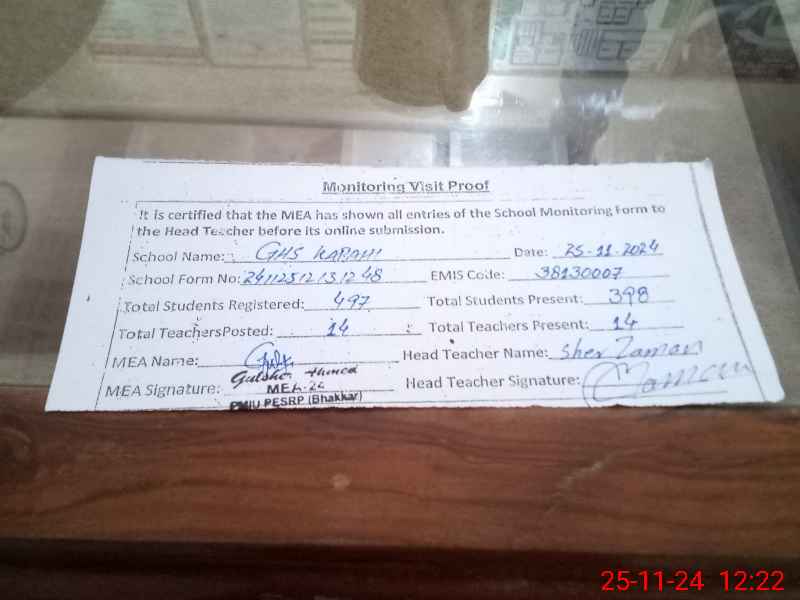 Monitoring Visit Proof
It is certified that the MEA has shown all entries of the School Monitoring Form to
the Head Teacher before its online submission.
School Name: GHS KARAMI Date: 25-11-2024
School Form No: EMIS Code: 38130007
Total Students Registered: 497 Total Students Present: 398
Total TeachersPosted: 14 Total Teachers Present: 14
MEA Name: Head Teacher Name: Sher Zaman
MEA Signature: Gulsher Ahmed Head Teacher Signature: Zaman
MEA-24
PMIU PESRP (Bhakkar)
25-11-24 12:22